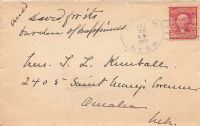 and
David for its
burden of happiness
Mrs. T. L. Kimball.
2405 Saint Mary's Avenue
Omaha
Neb.